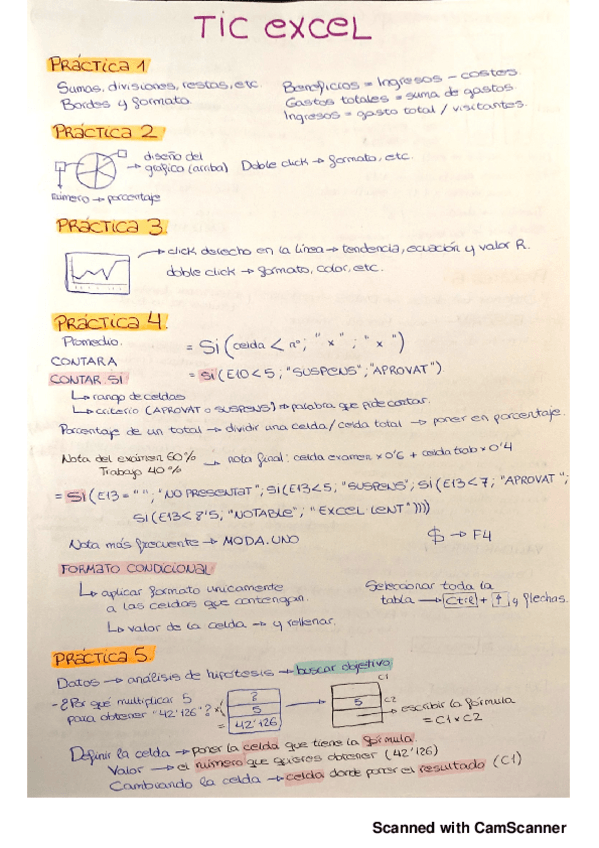 TIC EXCEL
PRÁCTICA 1
Sumas, divisiones, restas, etc.
Bordes y formato.
Beneficios = Ingresos - costes.
Gastos totales = suma de gastos.
Ingresos = gasto total / visitantes.
PRÁCTICA 2
diseño del
gráfico (arriba)
Doble click → formato, etc.
número → porcentaje
PRÁCTICA 3.
click derecho en la línea → tendencia, ecuación y valor R.
doble click → formato, color, etc.
PRÁCTICA 4.
Promedio.
CONTARA
CONTAR.SI
= Si (celda < nº; "x"; "x")
= Si (E10<5; "SUSPENS"; "APROVAT")
↳ rango de celdas
↳ criterio (APROVAT o SUSPENS) → palabra que pide contar.
Porcentaje de un total → dividir una celda/celda total → poner en porcentaje.
Nota del exámen 60%
Trabajo 40%
→ nota final: celda examen × 0'6 + celda trab × 0'4
= Si (E13 = " "; "NO PRESENTAT"; SI(E13<5; "SUSPENS"; SI(E13<7; "APROVAT";
SI(E13<8'5; "NOTABLE"; "EXCEL·LENT"))))
Nota más frecuente → MODA.UNO
$ → F4
FORMATO CONDICIONAL
↳ aplicar formato unicamente
a las celdas que contengan.
↳ valor de la celda → y rellenar.
Seleccionar toda la
tabla → Ctrl + ↑ y flechas.
PRÁCTICA 5.
Datos → análisis de hipótesis → buscar objetivo
-¿Por qué multiplicar 5
para obtener "42'126"?
?
× 5
= 42'126
C1
5 C2
escribir la fórmula
= C1 × C2
Definir la celda → poner la celda que tiene la fórmula.
Valor → el número que quieres obtener (42'126)
Cambiando la celda → celda donde poner el resultado (C1)
Scanned with CamScanner